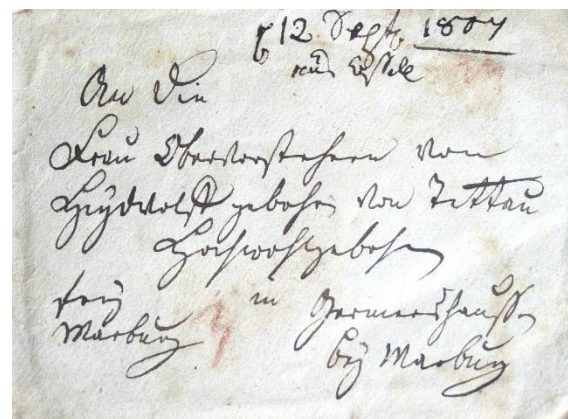 12 Sept. 1807
aus Cassel
An die
Frau Obervorsteherin von
Heydwolff gebohrne von Tettau
Hochwohlgebohren
frey in Germershausen
Marburg bey Marburg